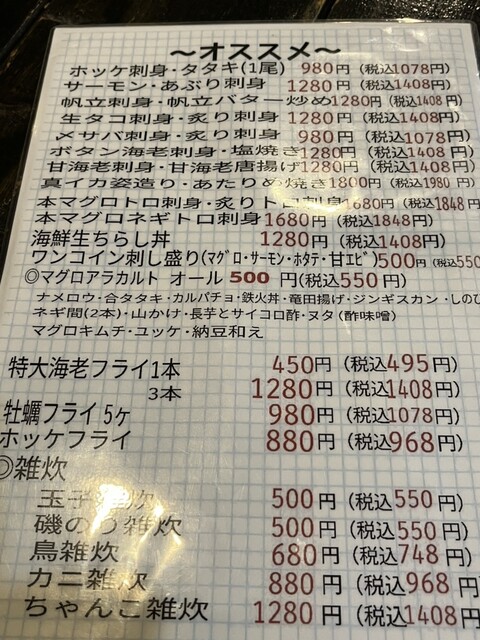 ～オススメ～
ホッケ刺身・タタキ(1尾) 980円 (税込1078円)
サーモン・あぶり刺身 1280円 (税込1408円)
帆立刺身・帆立バター炒め1280円 (税込1408円)
生タコ刺身・炙り刺身 1280円 (税込1408円)
〆サバ刺身・炙り刺身 980円 (税込1078円)
ボタン海老刺身・塩焼き1280円 (税込1408円)
甘海老刺身・甘海老唐揚げ1280円 (税込1408円)
真イカ姿造り・あたりめ焼き1800円 (税込1980円)
本マグロトロ刺身・炙りトロ刺身1680円 (税込1848円
本マグロネギトロ刺身 1680円 (税込1848円)
海鮮生ちらし丼 1280円 (税込1408円)
ワンコイン刺し盛り(マグロ・サーモン・ホタテ・甘エビ)500円 (税込550
◎マグロアラカルト オール500円(税込550円)
ナメロウ・合タタキ・カルパチョ・鉄火丼・竜田揚げ・ジンギスカン・しのび
ネギ間(2本)・山かけ・長芋とサイコロ酢・ヌタ (酢味噌)
マグロキムチ・ユッケ・納豆和え
特大海老フライ1本 450円 (税込495円)
3本 1280円 (税込1408円)
牡蠣フライ 5ヶ 980円 (税込1078円)
ホッケフライ 880円 (税込968円)
◎雑炊
玉子雑炊 500円 (税込550円)
磯のり雑炊 500円 (税込550円)
鳥雑炊 680円 (税込748円)
カニ雑炊 880円 (税込968円)
ちゃんこ雑炊 1280円 (税込1408円)